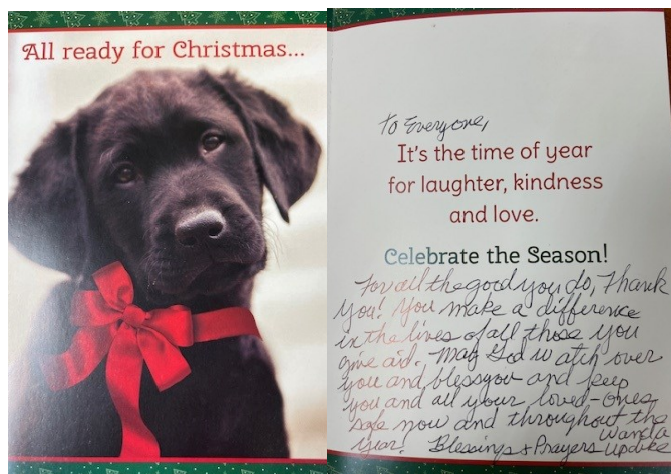 All ready for Christmas...
To Everyone,
It's the time of year
for laughter, kindness
and love.
Celebrate the Season!
For all the good you do, Thank
you! You make a difference
in the lives of all those you
give aid. May God watch over
you and bless you and keep
you and all your loved-ones
safe now and throughout the
year! Blessings & Prayers
Wanda
Updike